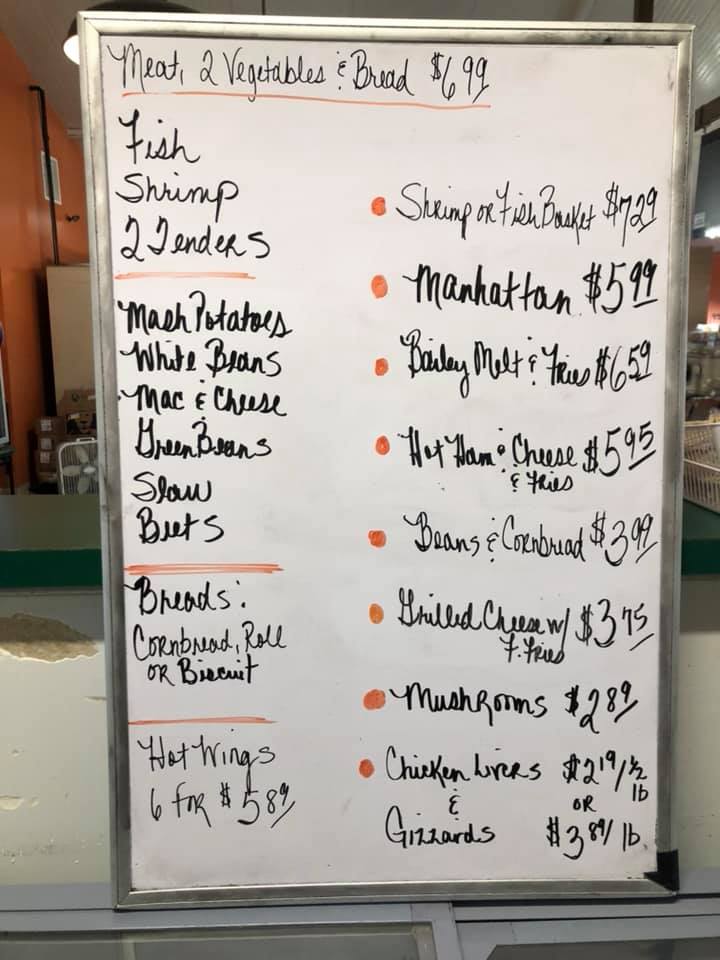 Meat, 2 Vegetables & Bread $6.99
Fish
Shrimp
2 Tenders
Mash Potatoes
White Beans
Mac & Cheese
Green Beans
Slaw
Beets
Breads:
Cornbread, Roll
or Biscuit
Hot Wings
6 for $5.89
Shrimp or Fish Basket $7.29
Manhattan $5.99
Bailey Melt & Fries $6.59
Hot Ham & Cheese $5.95
& Fries
Beans & Cornbread $3.99
Grilled Cheese w/ $3.75
F. Fries
Mushrooms $2.89
Chicken Livers $2.19/½ lb
& or
Gizzards $3.89/lb